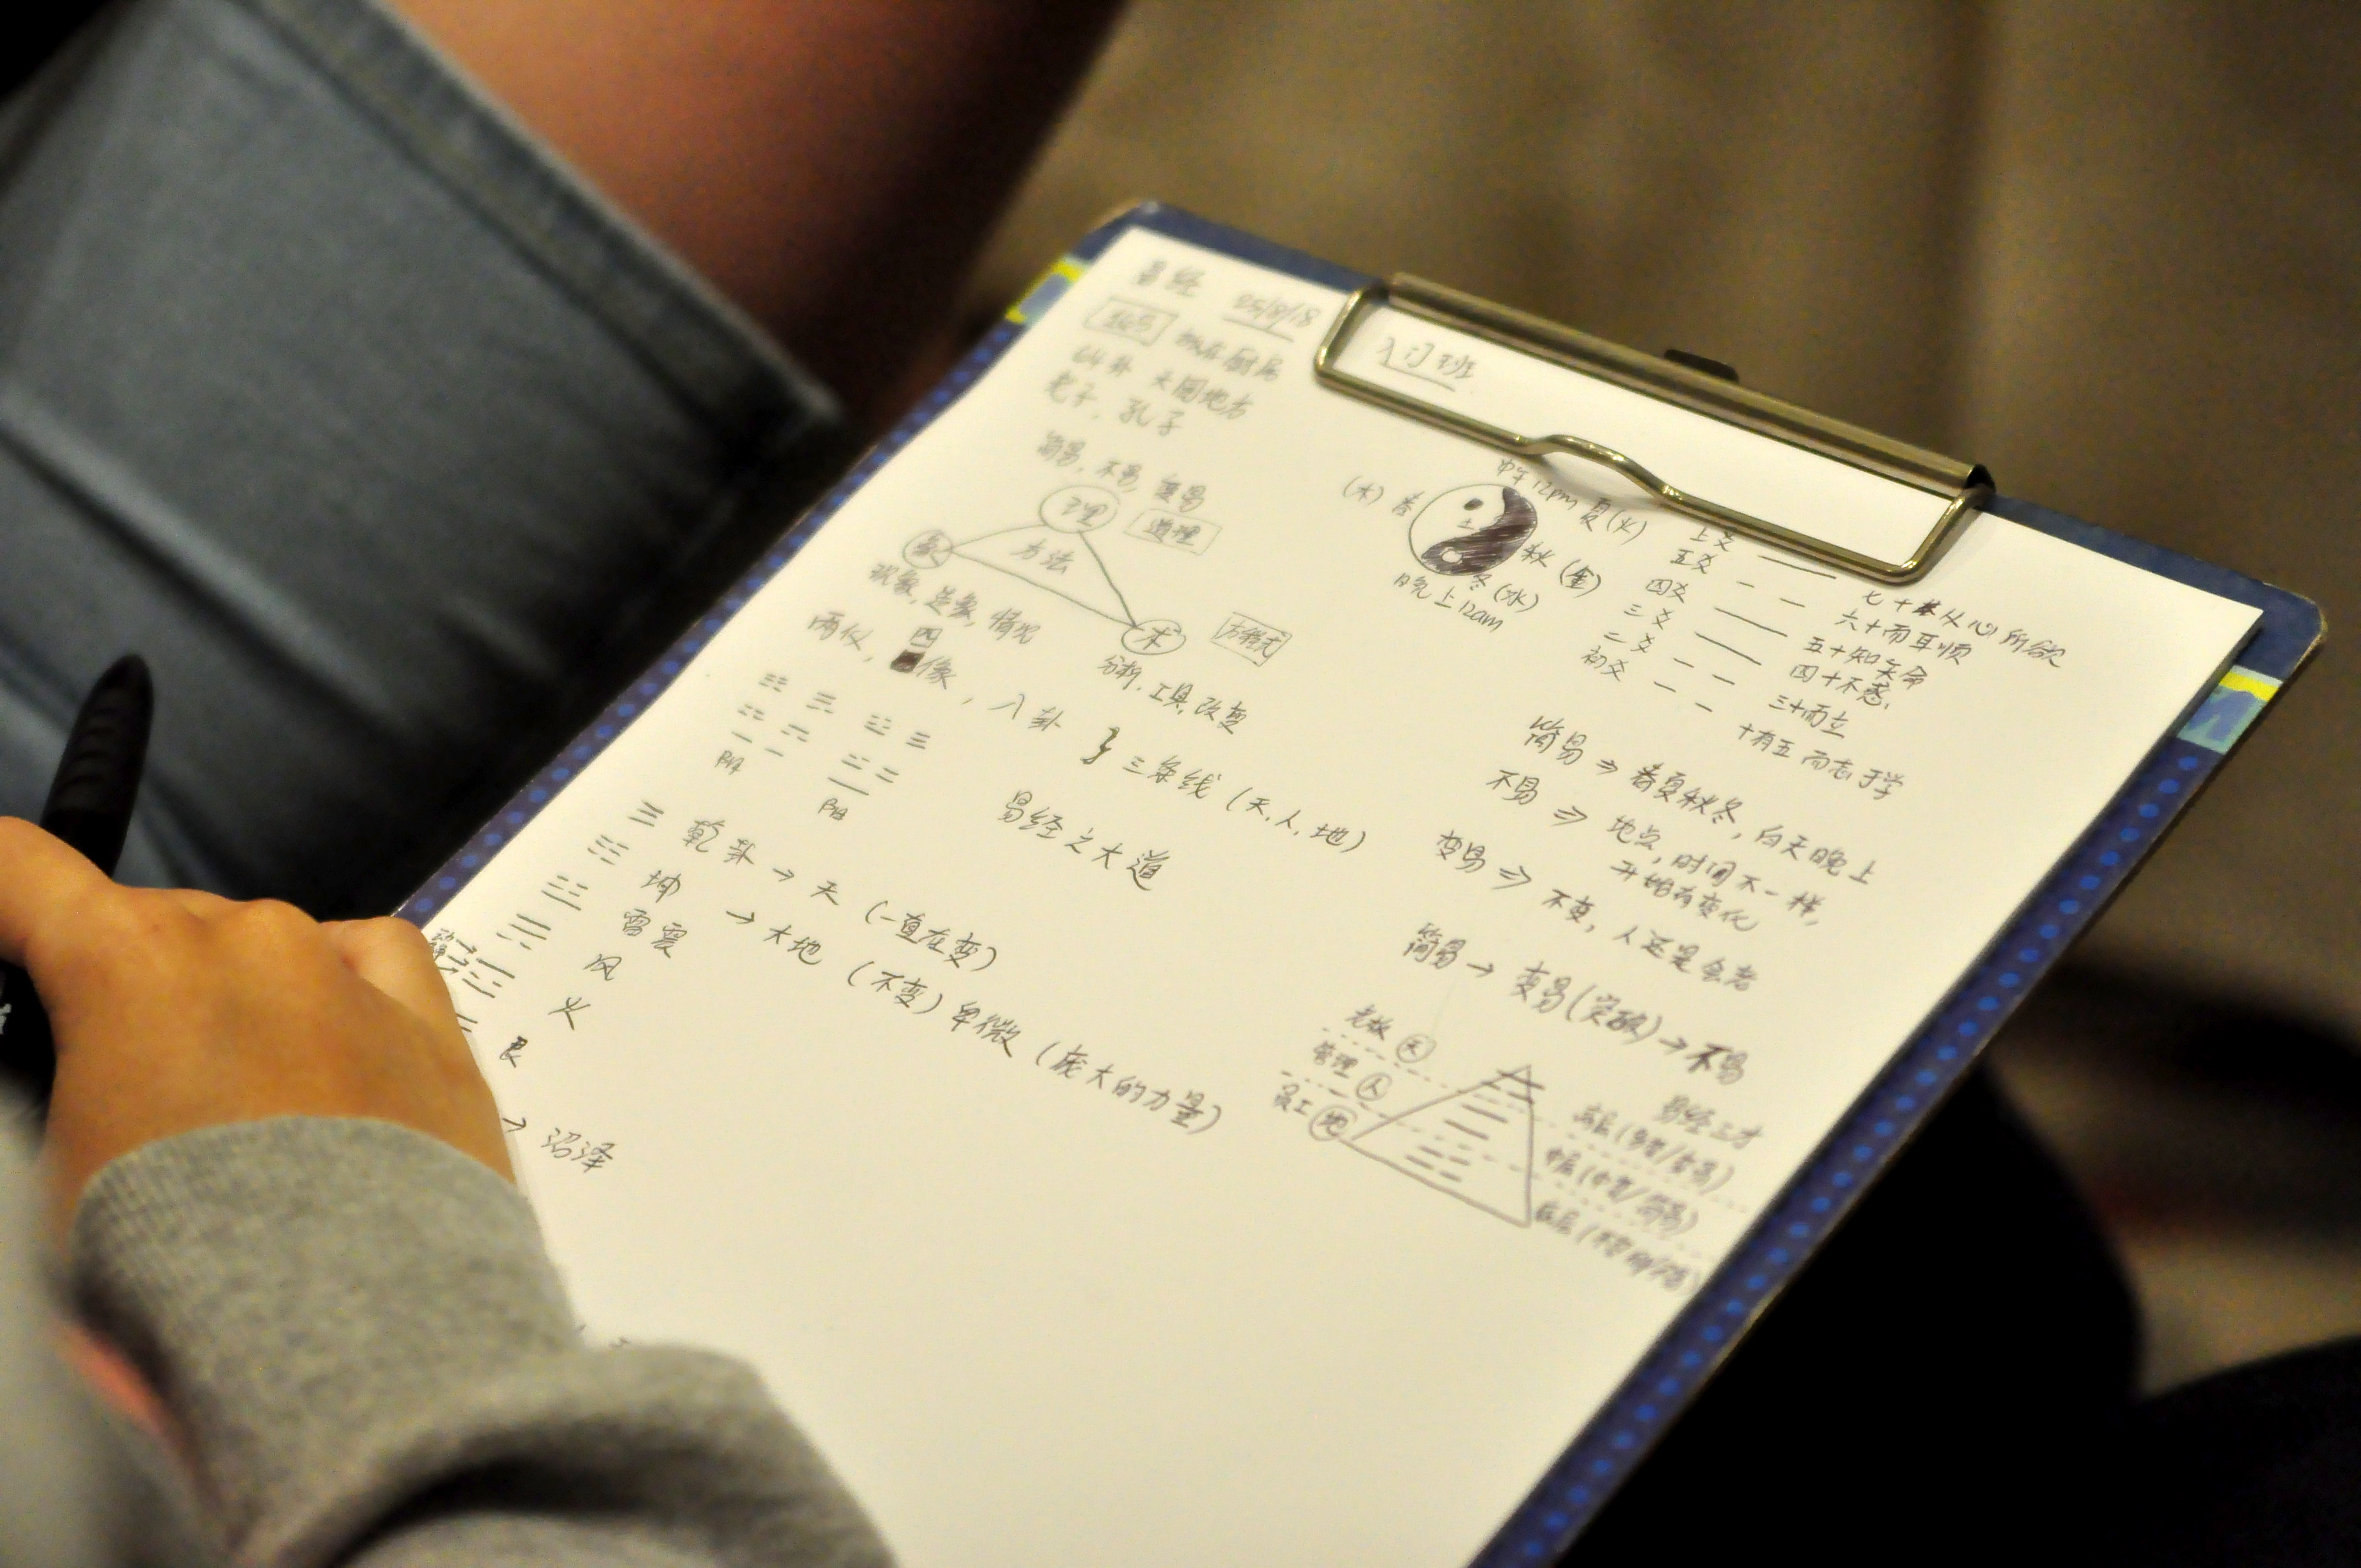 易经 25/8/18
入门班
天圆地方
老子，孔子
简易，不易，变易
理
道理
象
方法
术
方程式
现象，造象，情况
分析，工具，改变
两仪，四像，八卦 } 三条线（天，人，地）
阴
阳
易经之大道
乾卦 → 天（一直在变）
坤 → 大地（不变）卑微（庞大的力量）
雷震
风
火
艮
→ 沼泽
中午12pm 夏(火)
(木) 春
土
秋(金)
冬(水)
晚上12am
上爻
五爻
四爻
三爻
二爻
初爻
七十从心所欲
六十而耳顺
五十知天命
四十不惑
三十而立
十有五而志于学
简易 ⇒ 春夏秋冬，白天晚上
不易 ⇒ 地点，时间不一样，
开始有变化
变易 ⇒ 不变，人还是会老
简易 → 变易(突破) → 不易
老板 天
管理 人
员工 地
易经三才